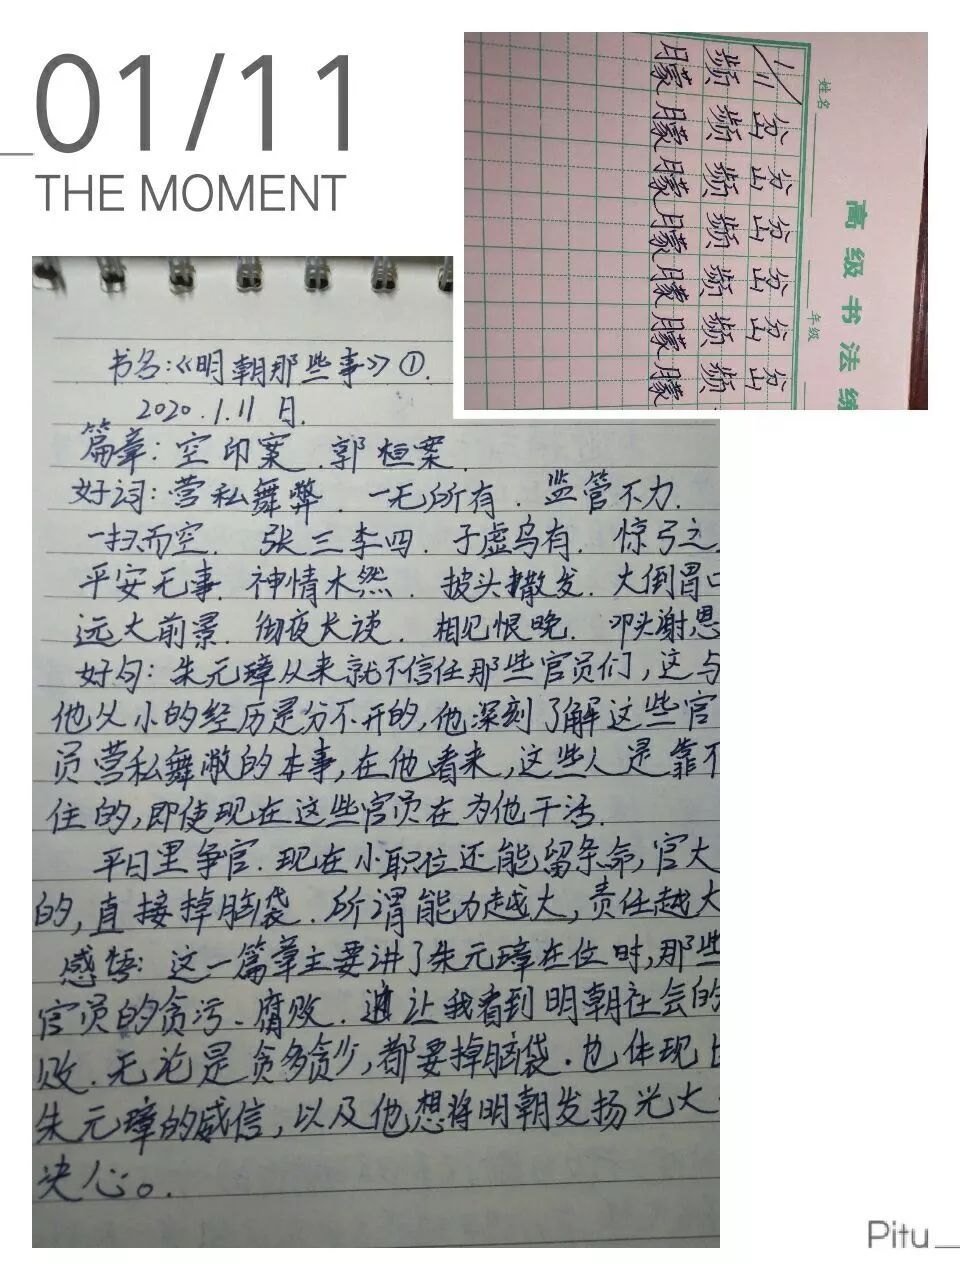 01/11
THE MOMENT
高级书法练
姓名
年级
1/11
岔 岔 岔 岔 岔 岔
频 频 频 频 频 频
朦 朦 朦 朦 朦 朦 朦
书名:《明朝那些事》①.
2020.1.11日.
篇章:空印案.郭桓案.
好词:营私舞弊.一无所有.监管不力.
一扫而空.张三李四.子虚乌有.惊弓之
平安无事.神情木然.披头撒发.大倒胃口
远大前景.彻夜长谈.相见恨晚.叩头谢恩
好句:朱元璋从来就不信任那些官员们,这与
他从小的经历是分不开的,他深刻了解这些官
员营私舞敝的本事,在他看来,这些人是靠不
住的,即使现在这些官员在为他干活.
平日里争官.现在小职位还能留条命,官大
的,直接掉脑袋.所谓能力越大,责任越大
感悟:这一篇章主要讲了朱元璋在位时,那些
官员的贪污、腐败.让我看到明朝社会的
败.无论是贪多贪少,都要掉脑袋.也体现
朱元璋的威信,以及他想将明朝发扬光大
决心。
Pitu